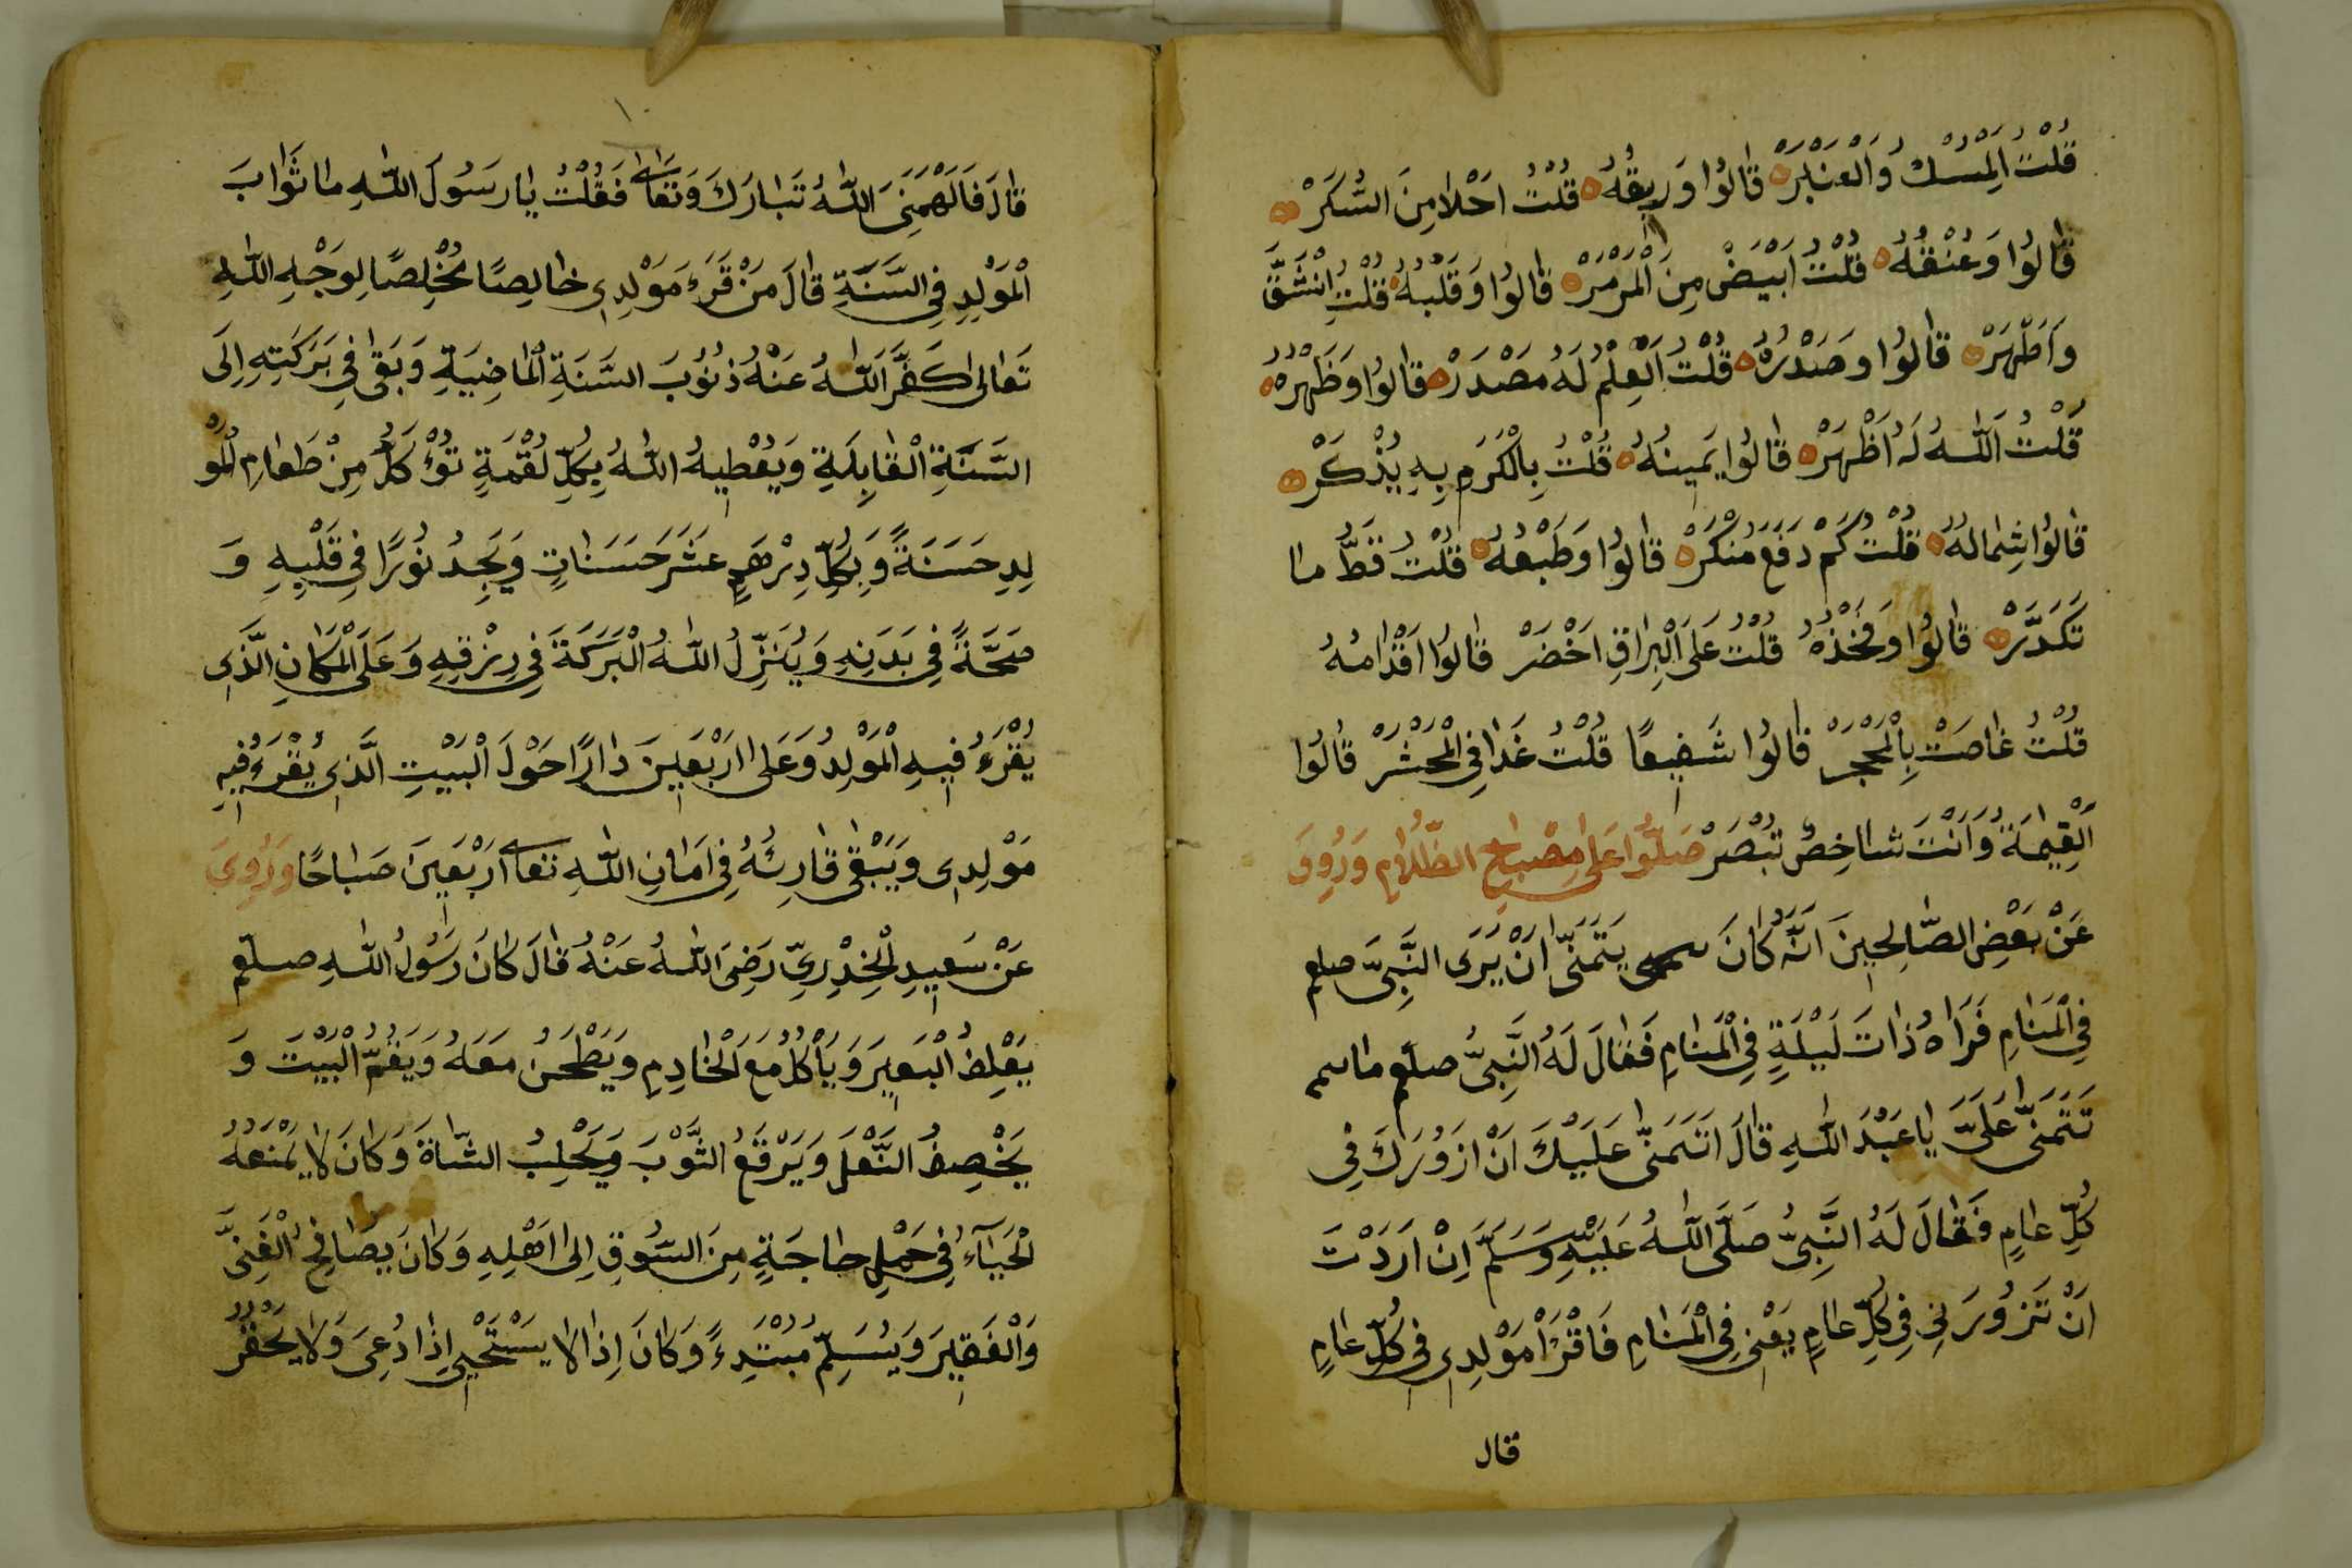 قُلْتُ الْمِسْكْ وَالْعَنْبَرْ قَالُوا وَرِيقُهُ قُلْتُ اَحْلَا مِنَ السُّكَرْ
قَالُوا وَعُنْقُهُ قُلْتُ اَبْيَضْ مِنَ الْمَرْمَرْ قَالُوا وَقَلْبُهُ قُلْتُ اِنْشَقَّ
وَاَطْهَرْ قَالُوا وَصَدْرُهُ قُلْتُ اَلْعِلْمُ لَهُ مَصْدَرْ قَالُوا وَظَهْرُهُ
قُلْتُ اَللّٰهُ لَهُ اَظْهَرْ قَالُوا يَمِينُهُ قُلْتُ بِالْكَرَمِ بِهِ يُذْكَرْ
قَالُوا شِمَالُهُ قُلْتُ كَمْ دَفَعَ مُنْكَرْ قَالُوا وَطَبْعُهُ قُلْتُ قَطُّ مَا
تَكَدَّرْ قَالُوا وَفَخْذُهُ قُلْتُ عَلَى الْبُرَاقِ اَخْضَرْ قَالُوا اَقْدَامُهُ
قُلْتُ غَاصَتْ بِالْحَجَرْ قَالُوا شَفِيعًا قُلْتُ غَدَا فِي الْمَحْشَرْ قَالُوا
اَلْقِيٰمَةُ وَاَنْتَ شَاخِصُ تُبْصَرْ صَلُّوا عَلٰى مِصْبَاحِ الظَّلَامِ وَرُوِىَ
عَنْ بَعْضِ الصَّالِحِينَ اَنَّهُ كَانَ يَتَمَنّٰى اَنْ يَرَى النَّبِىَّ صلعم
فِي الْمَنَامِ فَرَاٰهُ ذَاتَ لَيْلَةٍ فِي الْمَنَامِ فَقَالَ لَهُ النَّبِىُّ صلعم ما
تَتَمَنّٰى عَلَىَّ يَا عَبْدَ اللّٰهِ قَالَ اَتَمَنّٰى عَلَيْكَ اَنْ اَزُورَكَ فِى
كُلِّ عَامٍ فَقَالَ لَهُ النَّبِىُّ صَلَّى اللّٰهُ عَلَيْهِ وَسَلَّمَ اِنْ اَرَدْتَ
اَنْ تَزُورَنِى فِي كُلِّ عَامٍ يَعْنِى فِي الْمَنَامِ فَاقْرَأْ مَوْلِدِى فِي كُلِّ عَامٍ
قال
قَالَ فَاَلْهَمَنِىَ اللّٰهُ تَبَارَكَ وَتَعَالٰى فَقُلْتُ يَا رَسُولَ اللّٰهِ مَا ثَوَابَ
الْمَوْلِدِ فِي السَّنَةِ قَالَ مَنْ قَرَءَ مَوْلِدِى خَالِصًا مُخْلِصًا لِوَجْهِ اللّٰهِ
تَعَالٰى كَفَّرَ اللّٰهُ عَنْهُ ذُنُوبَ السَّنَةِ الْمَاضِيَةِ وَبَقٰى فِي بَرَكَتِهِ اِلَى
السَّنَةِ الْقَابِلَةِ وَيُعْطِيهُ اللّٰهُ بِكُلِّ لُقْمَةٍ تُؤْكَلُ مِنْ طَعَامِ الْمَوْ
لِدِ حَسَنَةً وَبِكُلِّ دِرْهَمٍ عَشَرَ حَسَنَاتٍ وَيَجِدُ نُورًا فِي قَلْبِهِ وَ
صَحَّةً فِي بَدَنِهِ وَيُنَزِّلُ اللّٰهُ الْبَرَكَةَ فِي رِزْقِهِ وَعَلَى الْمَكَانِ الَّذِى
يُقْرَءُ فِيهِ الْمَوْلِدُ وَعَلٰى اَرْبَعِينَ دَارًا حَوْلَ الْبَيْتِ الَّذِى يُقْرَءُ فِيهِ
مَوْلِدِى وَيَبْقٰى قَارِئُهُ فِي اَمَانِ اللّٰهِ تعالى اَرْبَعِينَ صَبَاحًا وَرُوِىَ
عَنْ سَعِيدِ الْخِدْرِيِّ رَضِىَ اللّٰهُ عَنْهُ قَالَ كَانَ رَسُولُ اللّٰهِ صلعم
يَعْلِفُ الْبَعِيرَ وَيَأْكُلُ مَعَ الْخَادِمِ وَيَطْحَنُ مَعَهُ وَيَقُمُّ الْبَيْتَ وَ
يَخْصِفُ النَّعْلَ وَيَرْقَعُ الثَّوْبَ وَيَحْلِبُ الشَّاةَ وَكَانَ لَا يَمْنَعُهُ
الْحَيَآءُ فِي حَمْلِ حَاجَةٍ مِنَ السُّوقِ اِلٰى اَهْلِهِ وَكَانَ يُصَافِحُ الْغَنِىَّ
وَالْفَقِيرَ وَيُسَلِّمُ مُبْتَدِءً وَكَانَ اِذَا لَا يَسْتَحْيِى اِذَا دُعِىَ وَلَا يَحْقُرُ